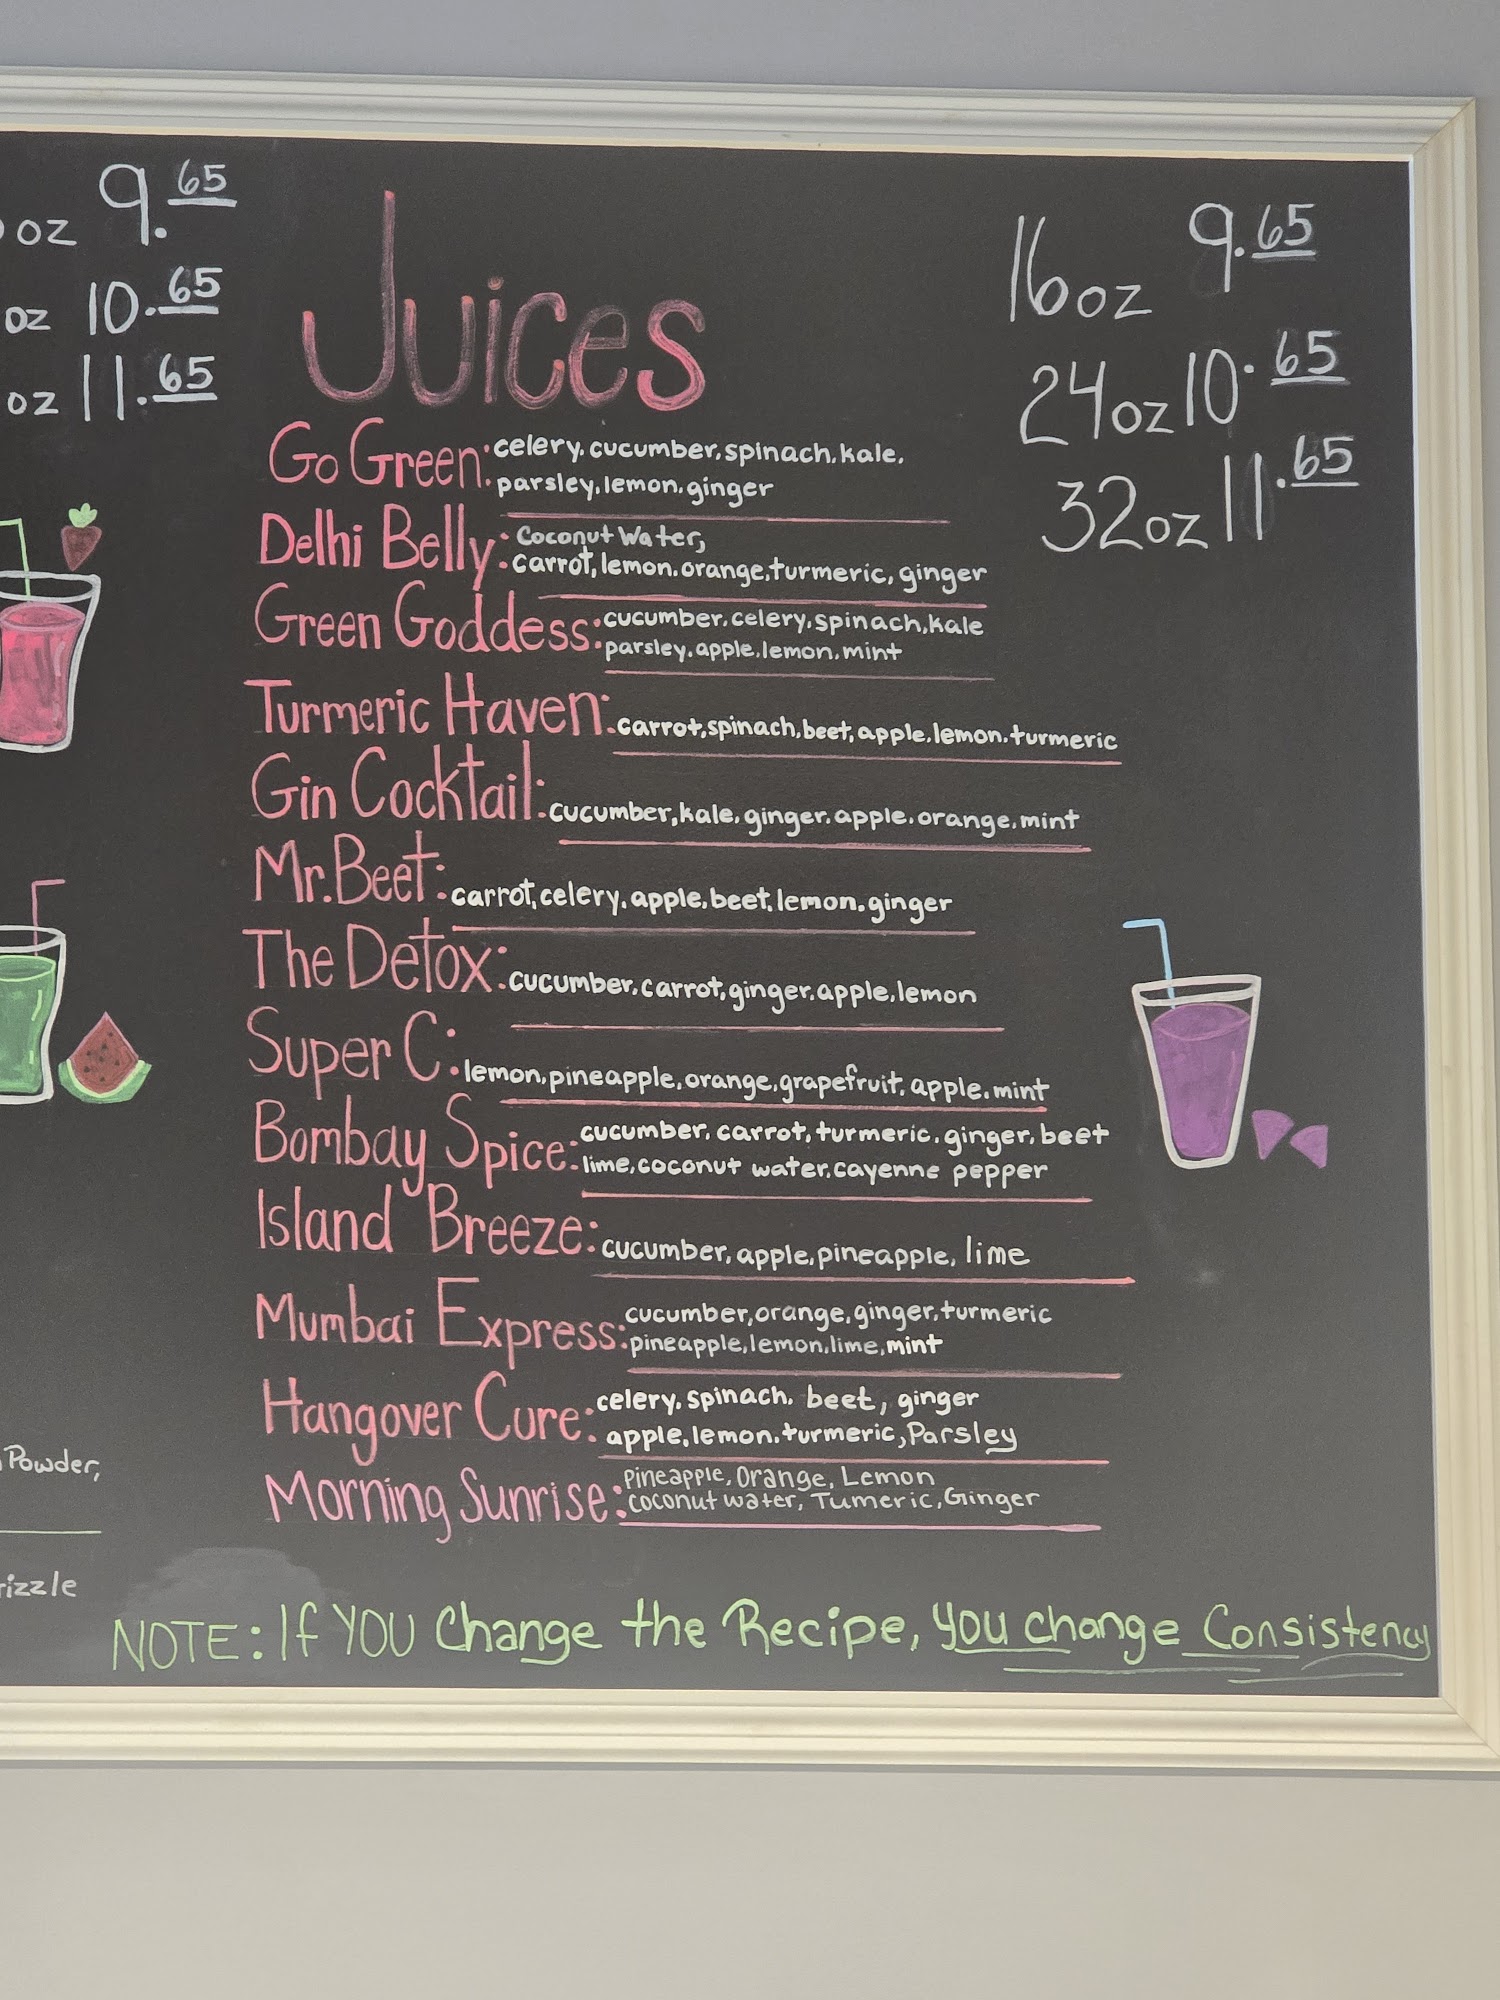 oz 9.65
oz 10.65
oz 11.65
Juices
16oz 9.65
24oz 10.65
32oz 11.65
Go Green: celery, cucumber, spinach, kale,
parsley, lemon, ginger
Delhi Belly: Coconut Water,
carrot, lemon, orange, turmeric, ginger
Green Goddess: cucumber, celery, spinach, kale
parsley, apple, lemon, mint
Turmeric Haven: carrot, spinach, beet, apple, lemon, turmeric
Gin Cocktail: cucumber, kale, ginger, apple, orange, mint
Mr. Beet: carrot, celery, apple, beet, lemon, ginger
The Detox: cucumber, carrot, ginger, apple, lemon
Super C: lemon, pineapple, orange, grapefruit, apple, mint
Bombay Spice: cucumber, carrot, turmeric, ginger, beet
lime, coconut water, cayenne pepper
Island Breeze: cucumber, apple, pineapple, lime
Mumbai Express: cucumber, orange, ginger, turmeric
pineapple, lemon, lime, mint
Hangover Cure: celery, spinach, beet, ginger
apple, lemon, turmeric, Parsley
Morning Sunrise: Pineapple, Orange, Lemon
coconut water, Tumeric, Ginger
Powder,
NOTE: If YOU Change the Recipe, you change Consistency